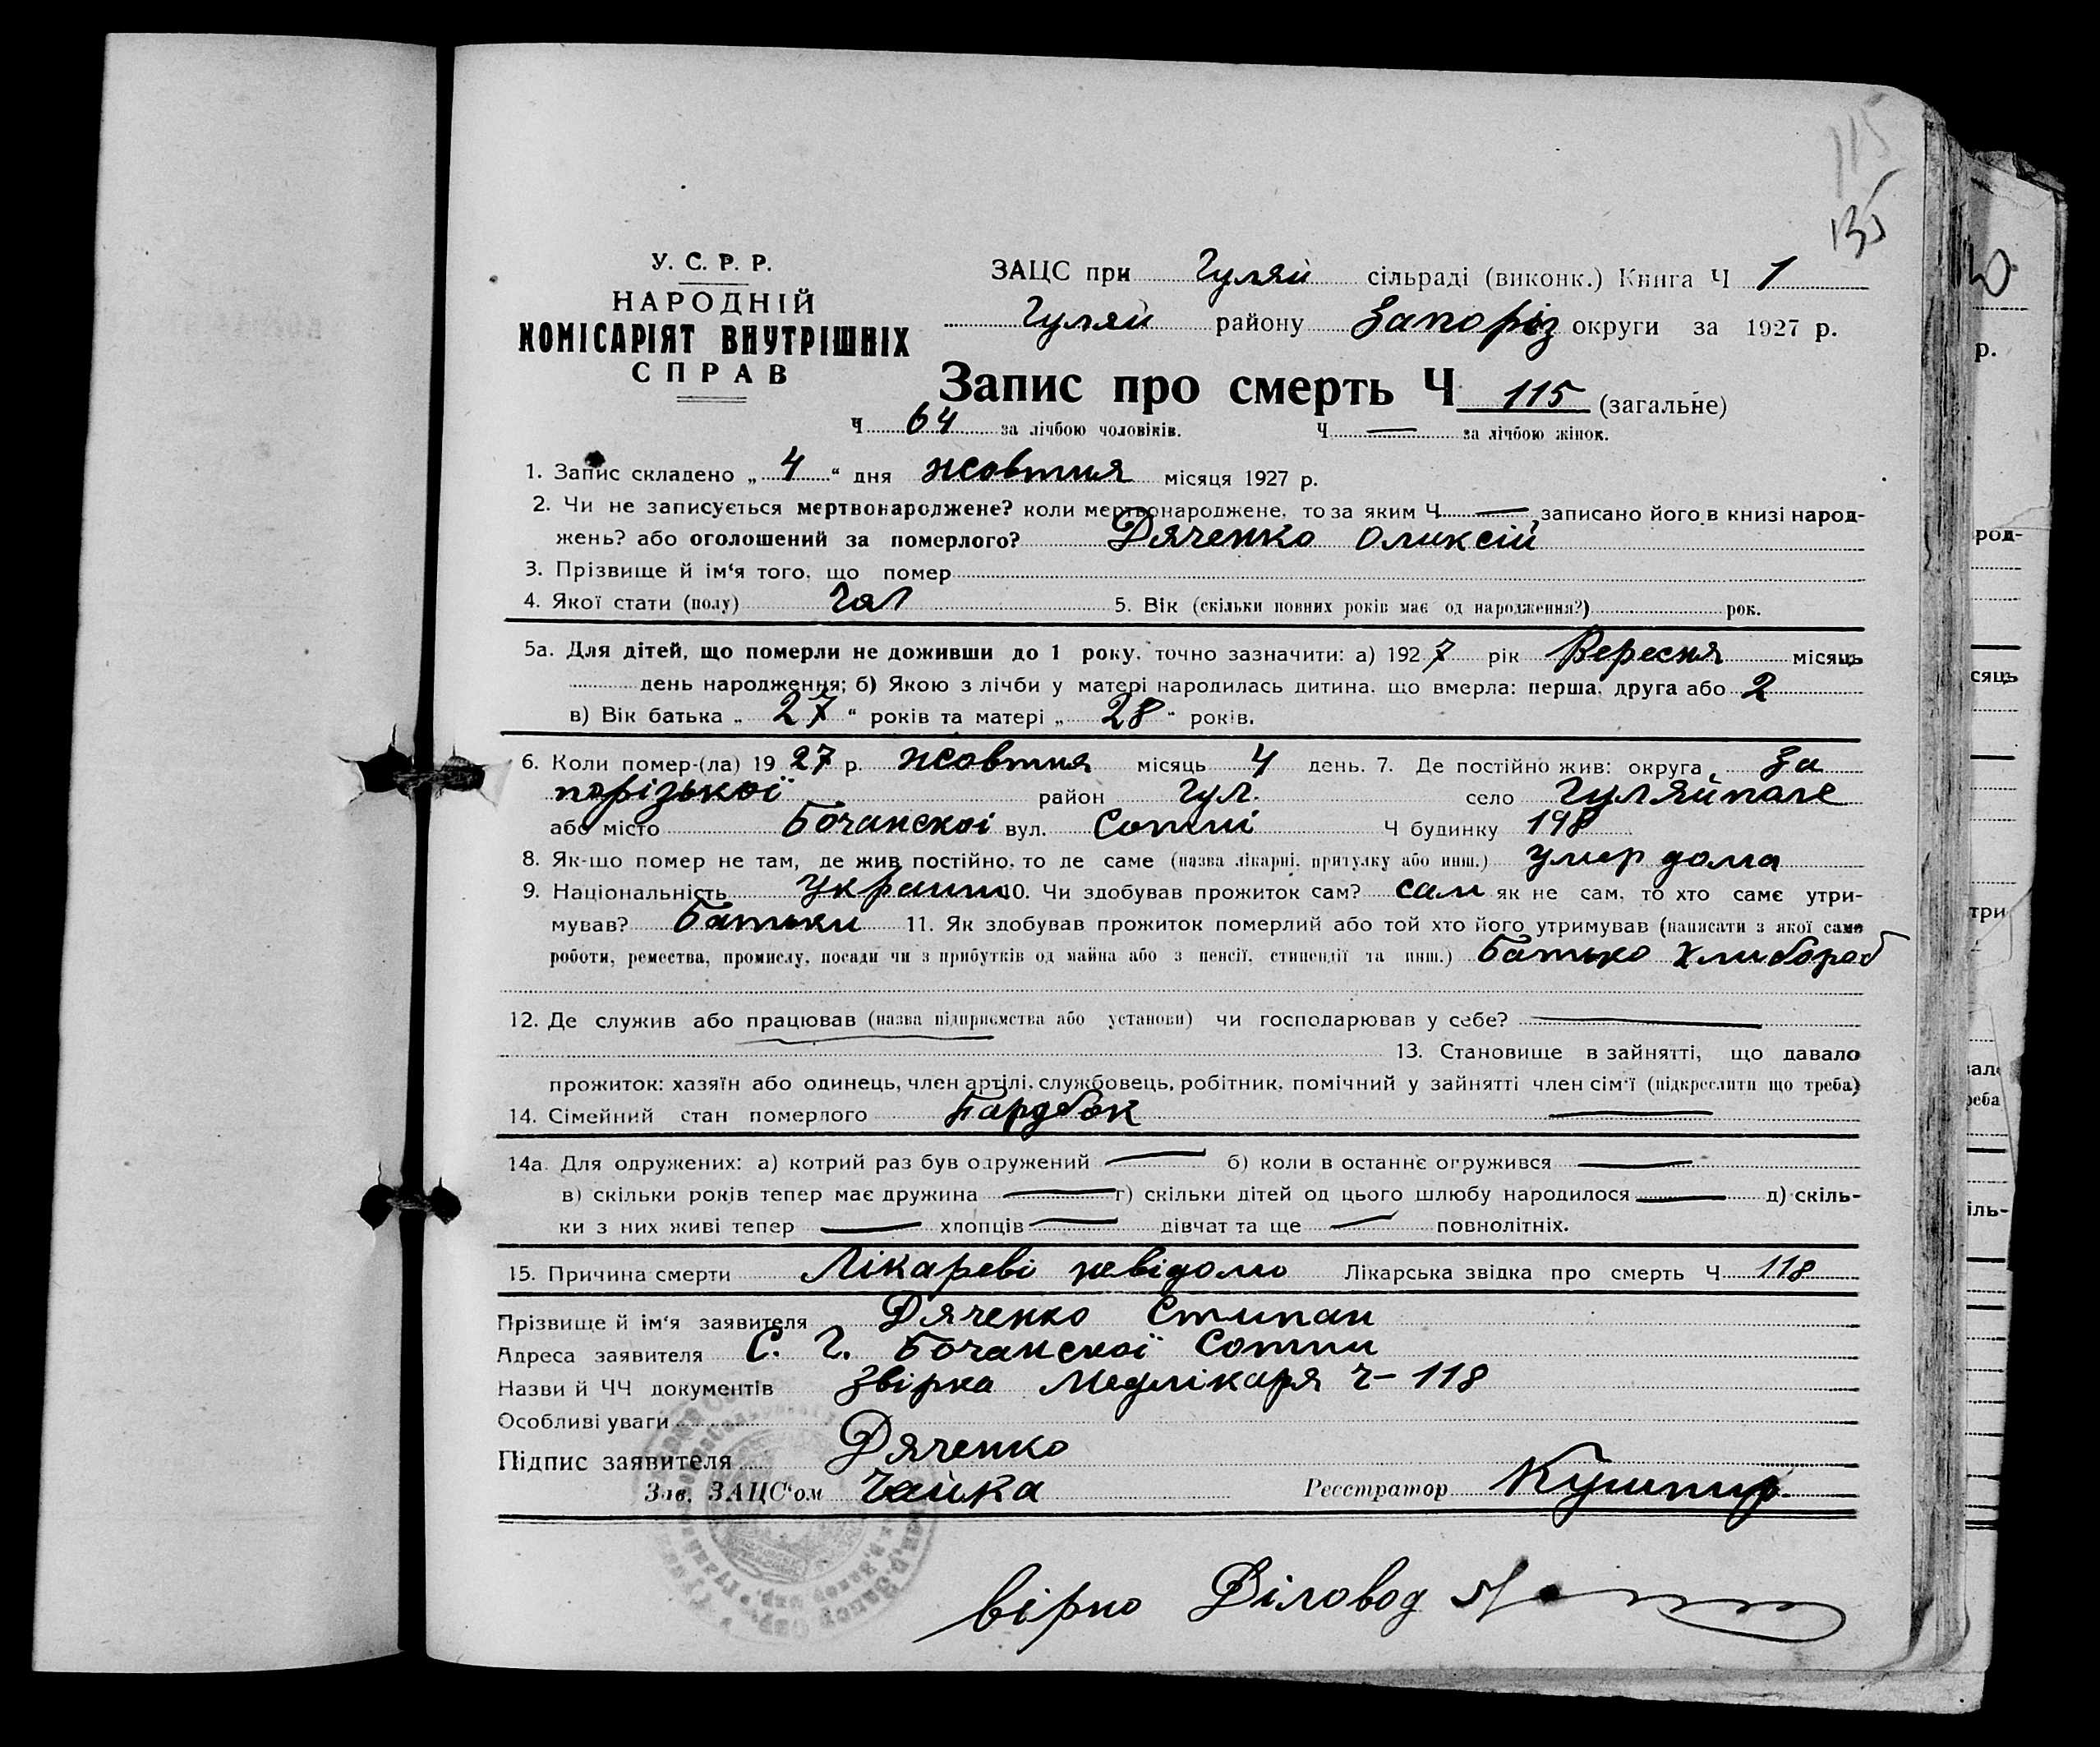 115
135
У. С. Р. Р.
НАРОДНІЙ
КОМІСАРІЯТ ВНУТРІШНІХ
СПРАВ
ЗАЦС при Гуляй сільраді (виконк.) Книга Ч 1
Гуляй району Запоріз округи за 1927 р.
Запис про смерть Ч 115 (загальне)
Ч 64 за лічбою чоловіків. Ч — за лічбою жінок.
1. Запис складено „ 4 “ дня жовтня місяця 1927 р.
2. Чи не записується мертвонароджене? коли мертвонароджене, то за яким Ч — записано його в книзі народ-
жень? або оголошений за померлого? Дяченко Оликсій
3. Прізвище й ім‘я того, що помер
4. Якої стати (полу) чол 5. Вік (скільки повних років має од народження?) рок.
5а. Для дітей, що померли не доживши до 1 року, точно зазначити: а) 1927 рік Вересня місяць
день народження; б) Якою з лічби у матері народилась дитина, що вмерла: перша, друга або 2
в) Вік батька „ 27 “ років та матері „ 28 “ років.
6. Коли помер-(ла) 1927 р. жовтня місяць 4 день. 7. Де постійно жив: округа За
порізької район Гул. село Гуляйполе
або місто Бочанскоі вул. Сотні Ч будинку 198
8. Як-що помер не там, де жив постійно, то де саме (назва лікарні, притулку або инш.) умер дома
9. Національність Украин 10. Чи здобував прожиток сам? сам як не сам, то хто саме утри-
мував? Батьки 11. Як здобував прожиток померлий або той хто його утримував (написати з якої саме
роботи, ремества, промислу, посади чи з прибутків од майна або з пенсії, стипендії та инш.) Батько Хлибороб
12. Де служив або працював (назва підприємства або установи) чи господарював у себе? —
13. Становище в зайнятті, що давало
прожиток: хазяїн або одинець, член артілі, службовець, робітник, помічний у зайнятті член сім‘ї (підкреслити що треба)
14. Сімейний стан померлого Парубок —
14а. Для одружених: а) котрий раз був одружений — б) коли в останнє огружився —
в) скільки років тепер має дружина — г) скільки дітей од цього шлюбу народилося — д) скіль-
ки з них живі тепер — хлопців — дівчат та ще — повнолітніх.
15. Причина смерти Лікареві невідомо Лікарська звідка про смерть Ч 118
Прізвище й ім‘я заявителя Дяченко Стипан
Адреса заявителя С. Г. Бочанскої Сотни
Назви й ЧЧ документів Звірка Медлікаря Ч-118
Особливі уваги
Підпис заявителя Дяченко
Зав. ЗАЦС‘ом Чайка Реєстратор Кушнир
вірно Діловод